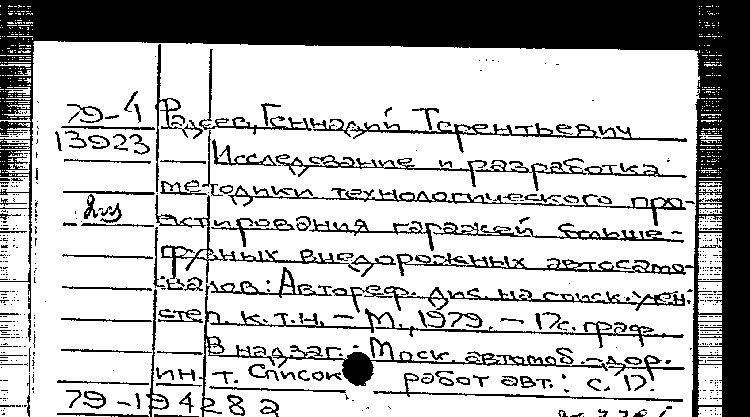 79-4
13923
Фадеев, Геннадий Терентьевич
Исследование и разработка
методики технологического про-
ектирования гаражей больше-
грузных внедорожных автосамо-
свалов: Автореф. дис. на соиск. учен.
степ. к.т.н. – М., 1979. – 17с. граф.
В надзаг.: Моск. автомоб.-дор.
ин-т. Список работ авт.: с. 17.
79-194282